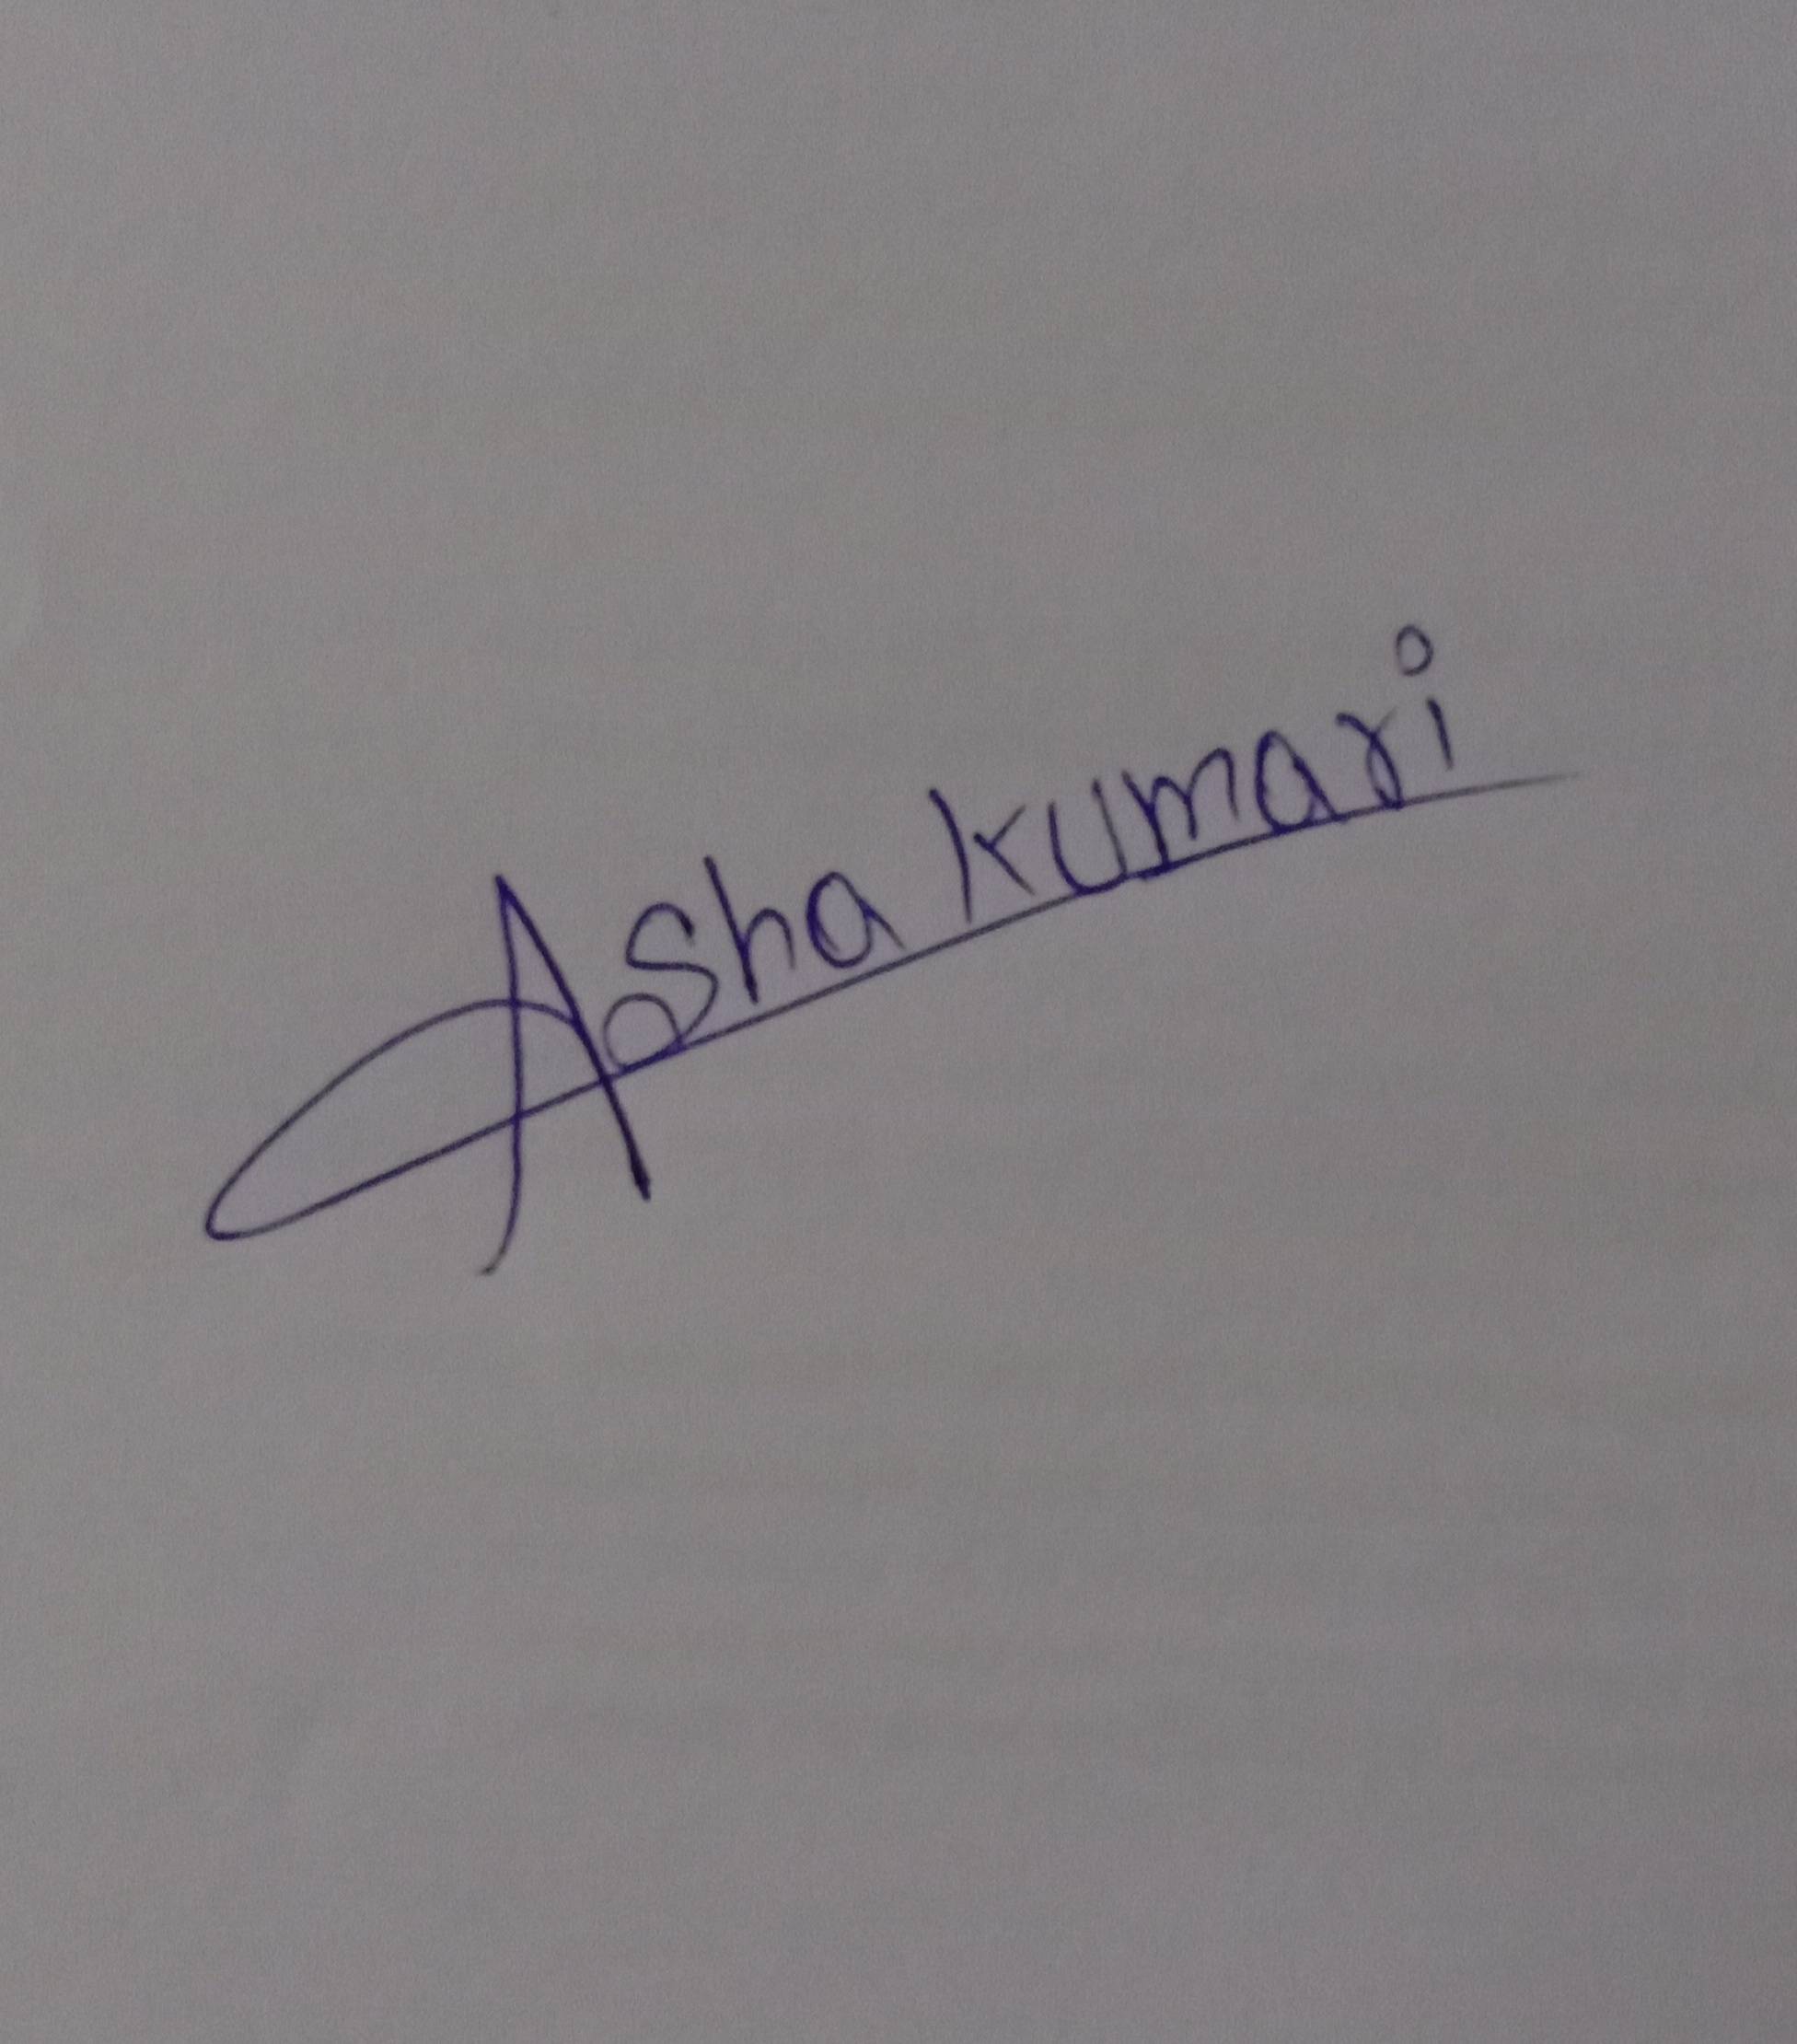 Asha kumari